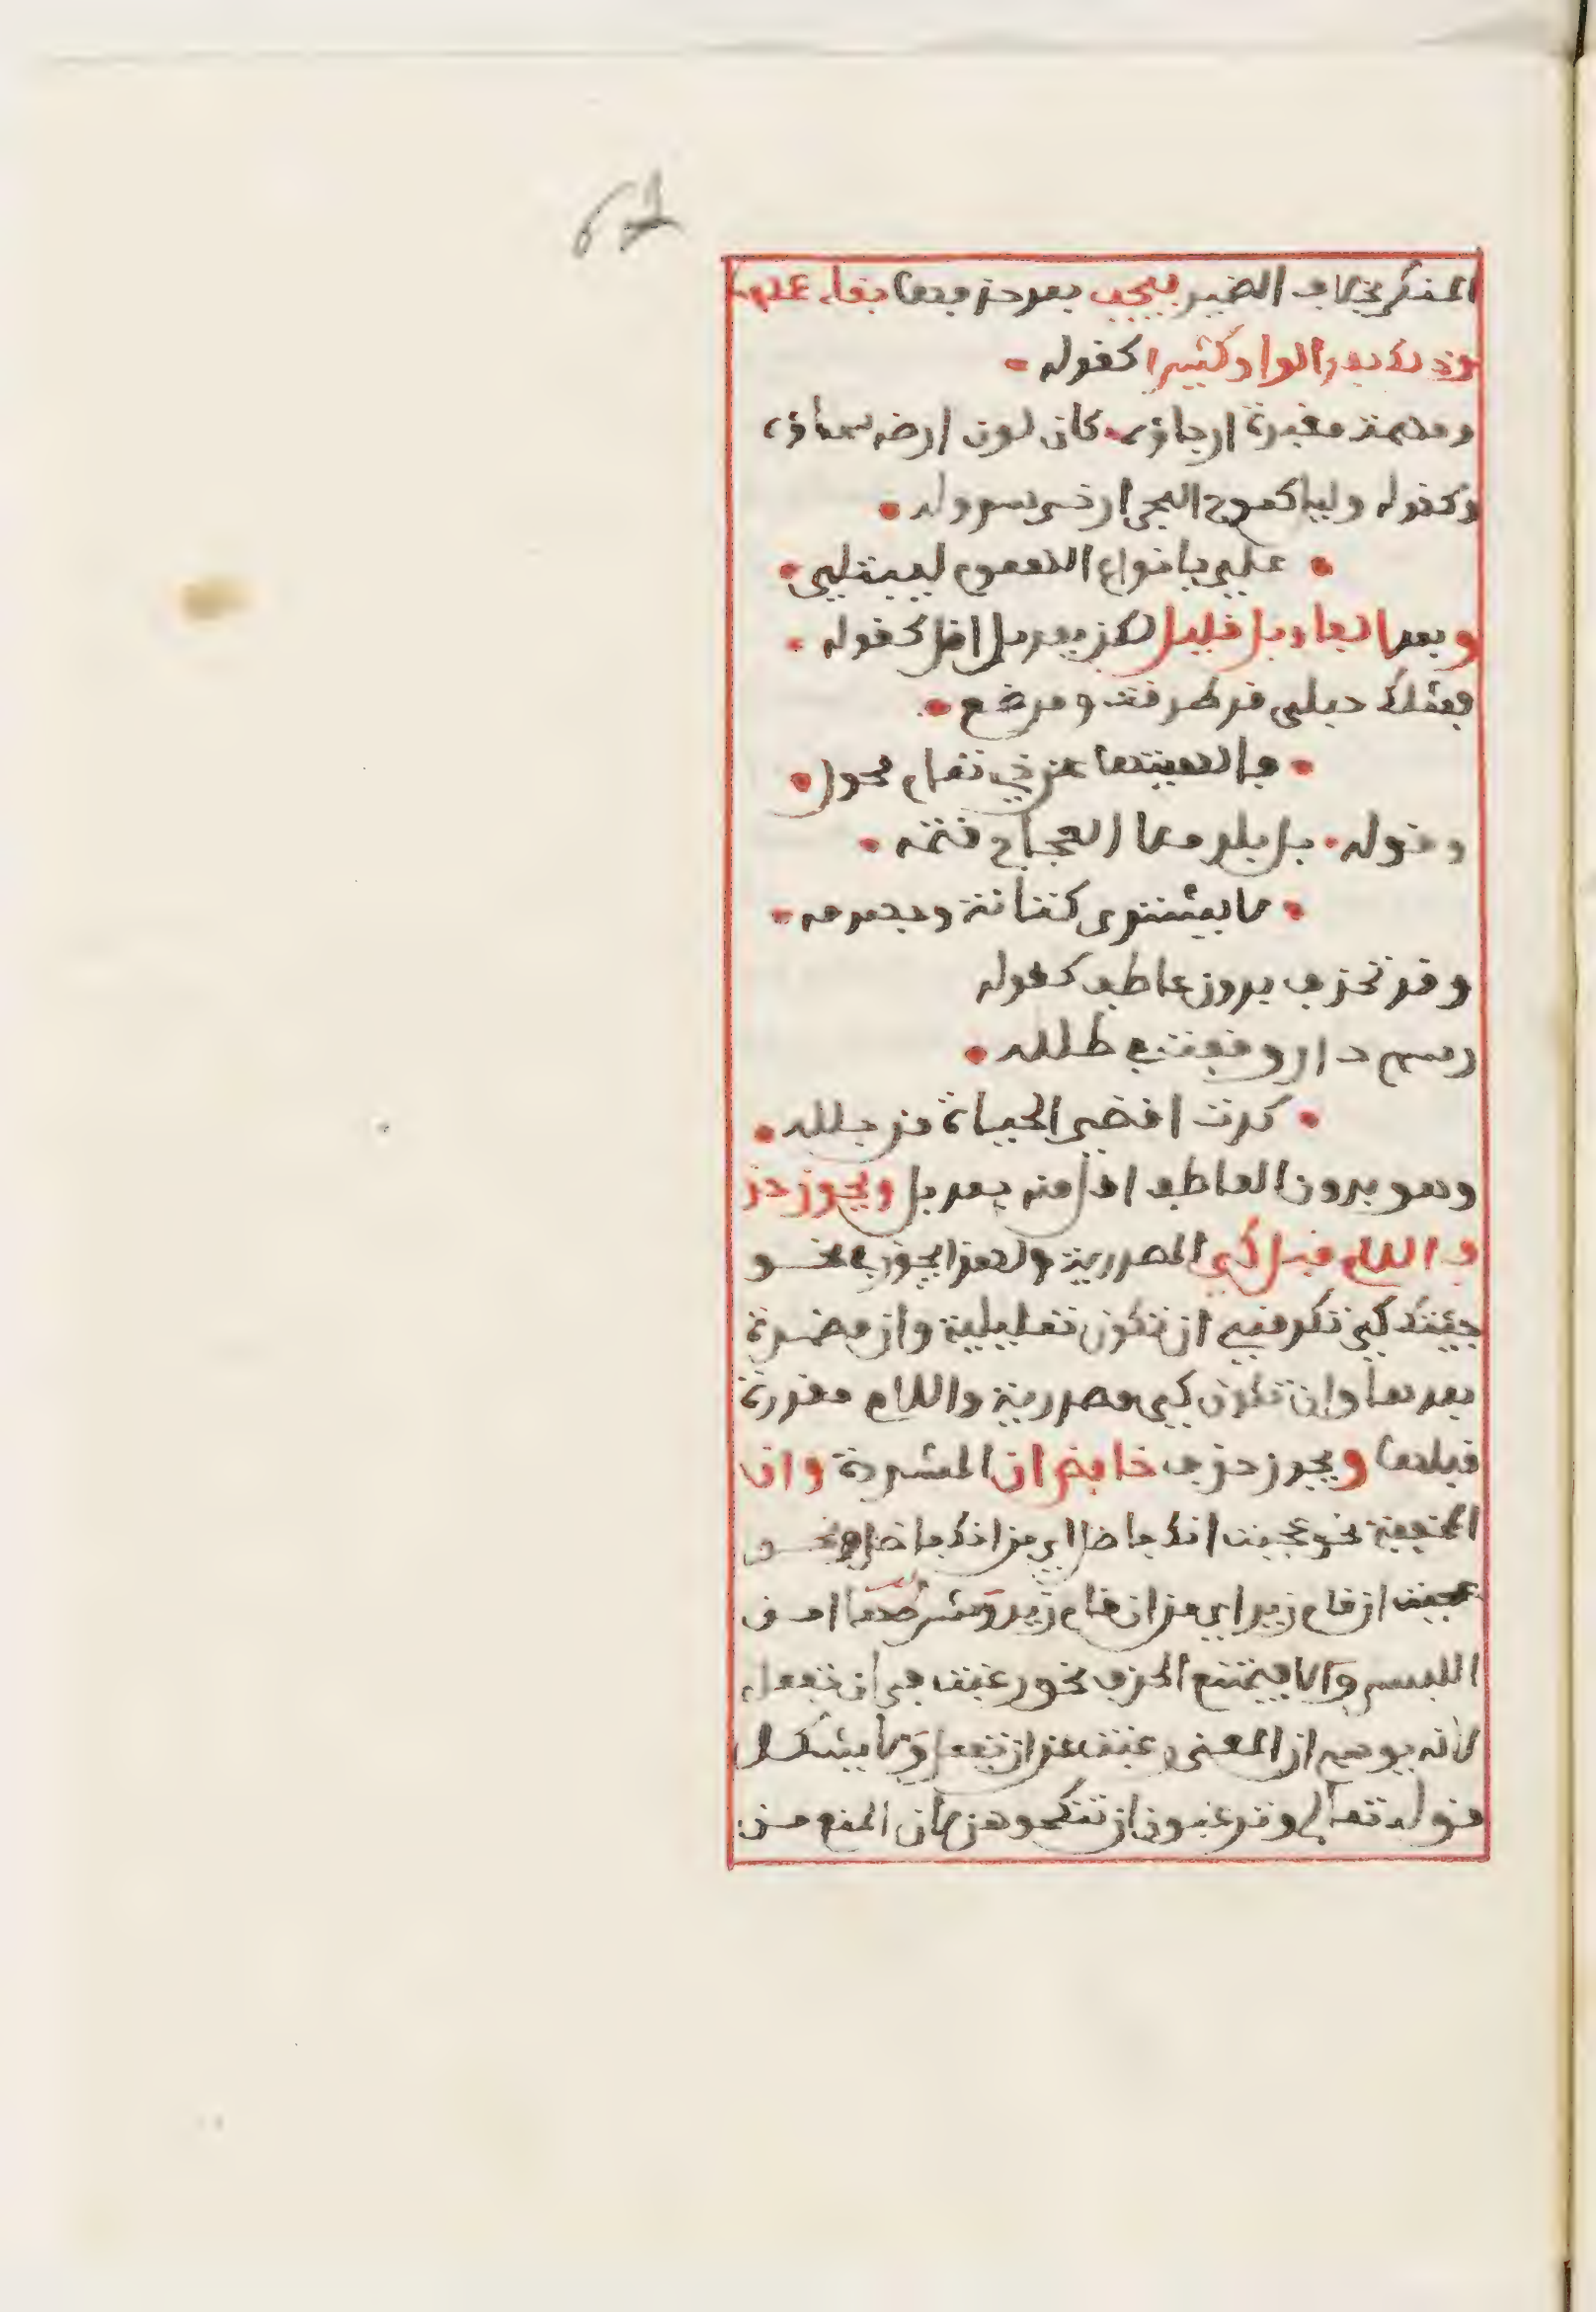 المنكر بخلاف الضمير فيجب بعد حذفها بقاء عملها
وذلك بعد الواو كثيرا كقوله
ومهمه مغبرة ارجاؤه كان لون ارضه سماؤه
وكقوله وليل كموج البحر ارخى سدوله
علي بانواع الهموم ليبتلي
وبعد الفاء وبل قليل لكن بعد بل اقل كقوله
فمثلك حبلى قد طرقت ومرضع
فالهيتها عن ذي تمائم محول
وقوله بل بلد ملء الفجاج قتمه
لا يشترى كتانه وجهرمه
وقد تحذف بدون عاطف كقوله
رسم دار وقفت في طلله
كدت اقضي الحياة من جلله
وهو بدون العاطف اقل منه بعد بل ويجوز حذ
ف اللام قبل كي المصدرية ولهذا يجوز في نحو
جئتك كي تكرمني ان تكون تعليلية وان مضمرة
بعدها وان تكون كي مصدرية واللام مقدرة
قبلها ويجوز حذف خافض ان المشددة وان
المخففة نحو عجبت انك فاضل اي من انك فاضل ونحو
عجبت ان قام زيد اي من ان قام زيد وشرطهما امن
اللبس والا فيمتنع الحذف نحو رغبت في ان تفعل
لانه يوهم ان المعنى رغبت عن ان تفعل ولا يشكل
قوله تعالى وترغبون ان تنكحوهن لان المنع من